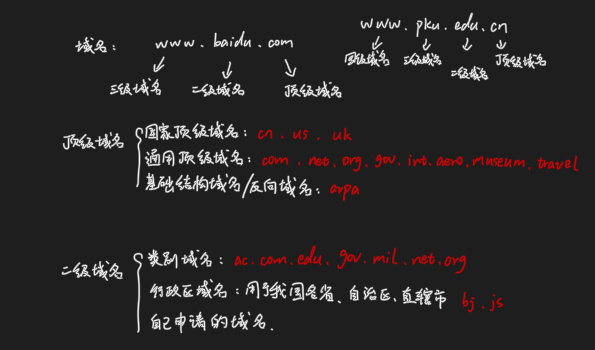 域名: www.baidu.com
三级域名 二级域名 顶级域名
www.pku.edu.cn
四级域名 三级域名 二级域名 顶级域名
顶级域名
国家顶级域名: cn . us . uk
通用顶级域名: com . net . org . gov . int . aero . museum . travel
基础结构域名/反向域名: arpa
二级域名
类别域名: ac . com . edu . gov . mil . net . org
行政区域名: 用于我国各省、自治区、直辖市 bj . js
自己申请的域名.